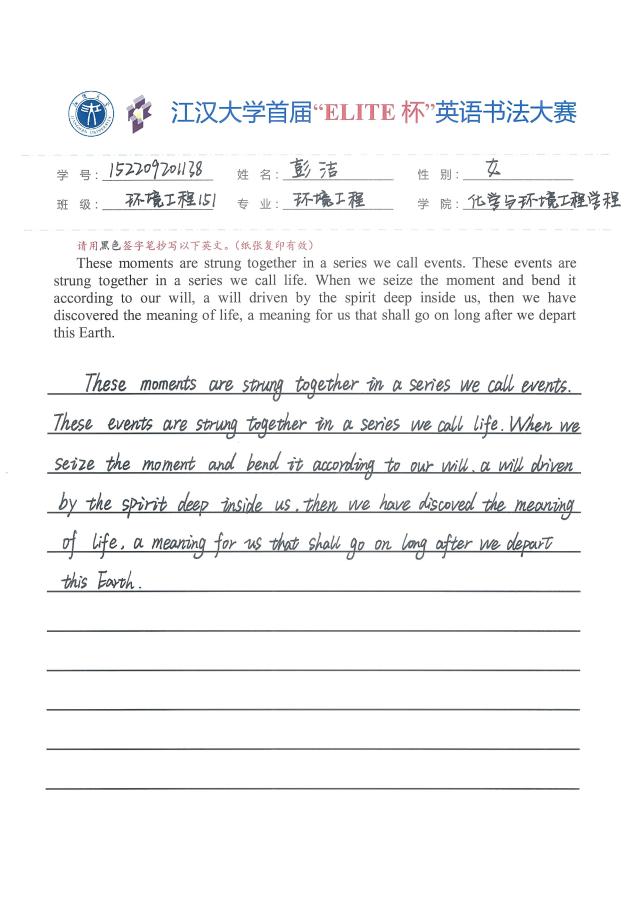 江汉大学首届“ELITE 杯”英语书法大赛
学 号：152209201138 姓 名：彭洁 性 别：女
班 级：环境工程151 专 业：环境工程 学 院：化学与环境工程学程
请用黑色签字笔抄写以下英文。（纸张复印有效）
These moments are strung together in a series we call events. These events are
strung together in a series we call life. When we seize the moment and bend it
according to our will, a will driven by the spirit deep inside us, then we have
discovered the meaning of life, a meaning for us that shall go on long after we depart
this Earth.
These moments are strung together in a series we call events.
These events are strung together in a series we call life. When we
seize the moment and bend it according to our will. a will driven
by the spirit deep inside us. then we have discoved the meaning
of life. a meaning for us that shall go on long after we depart
this Earth.